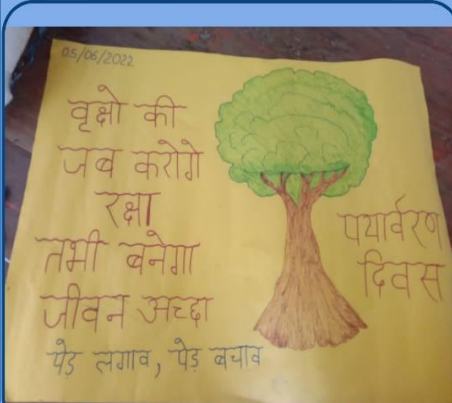 05/06/2022
वृक्षो की
जब करोगे
रक्षा
तभी बनेगा
जीवन अच्छा
पेड़ लगाव, पेड़ बचाव
पयार्वरण
दिवस